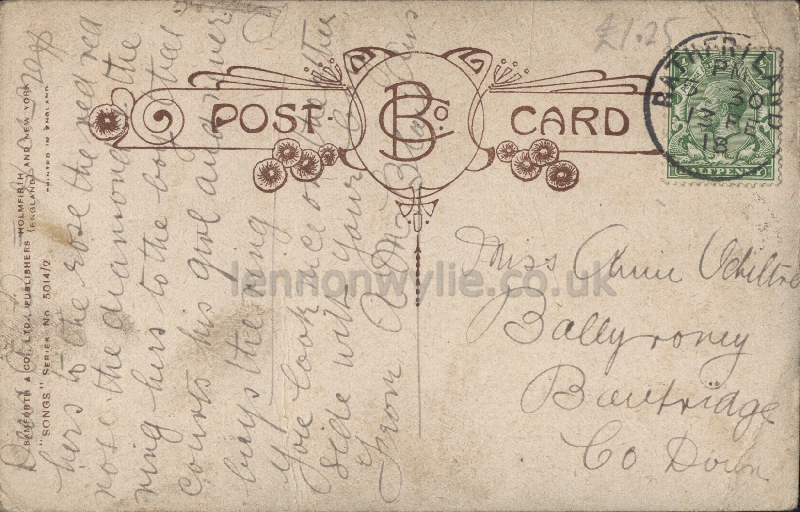 £1.25
POST CARD
BCo.
RATHFRILAND
PM
30
13 FE
18
HALFPENNY
Miss Annie Ochiltree
Ballyroney
Banbridge
Co Down
Dear
hers to the rose the red red
rose the diamond the
ring hers to the boy that
courts his girl and never
buys the ring
You look nice on the other
side with your
From
BAMFORTH & CO., LTD., PUBLISHERS HOLMFIRTH (ENGLAND) AND NEW YORK
"SONGS" SERIES No 5014/2
PRINTED IN ENGLAND
lennonwylie.co.uk